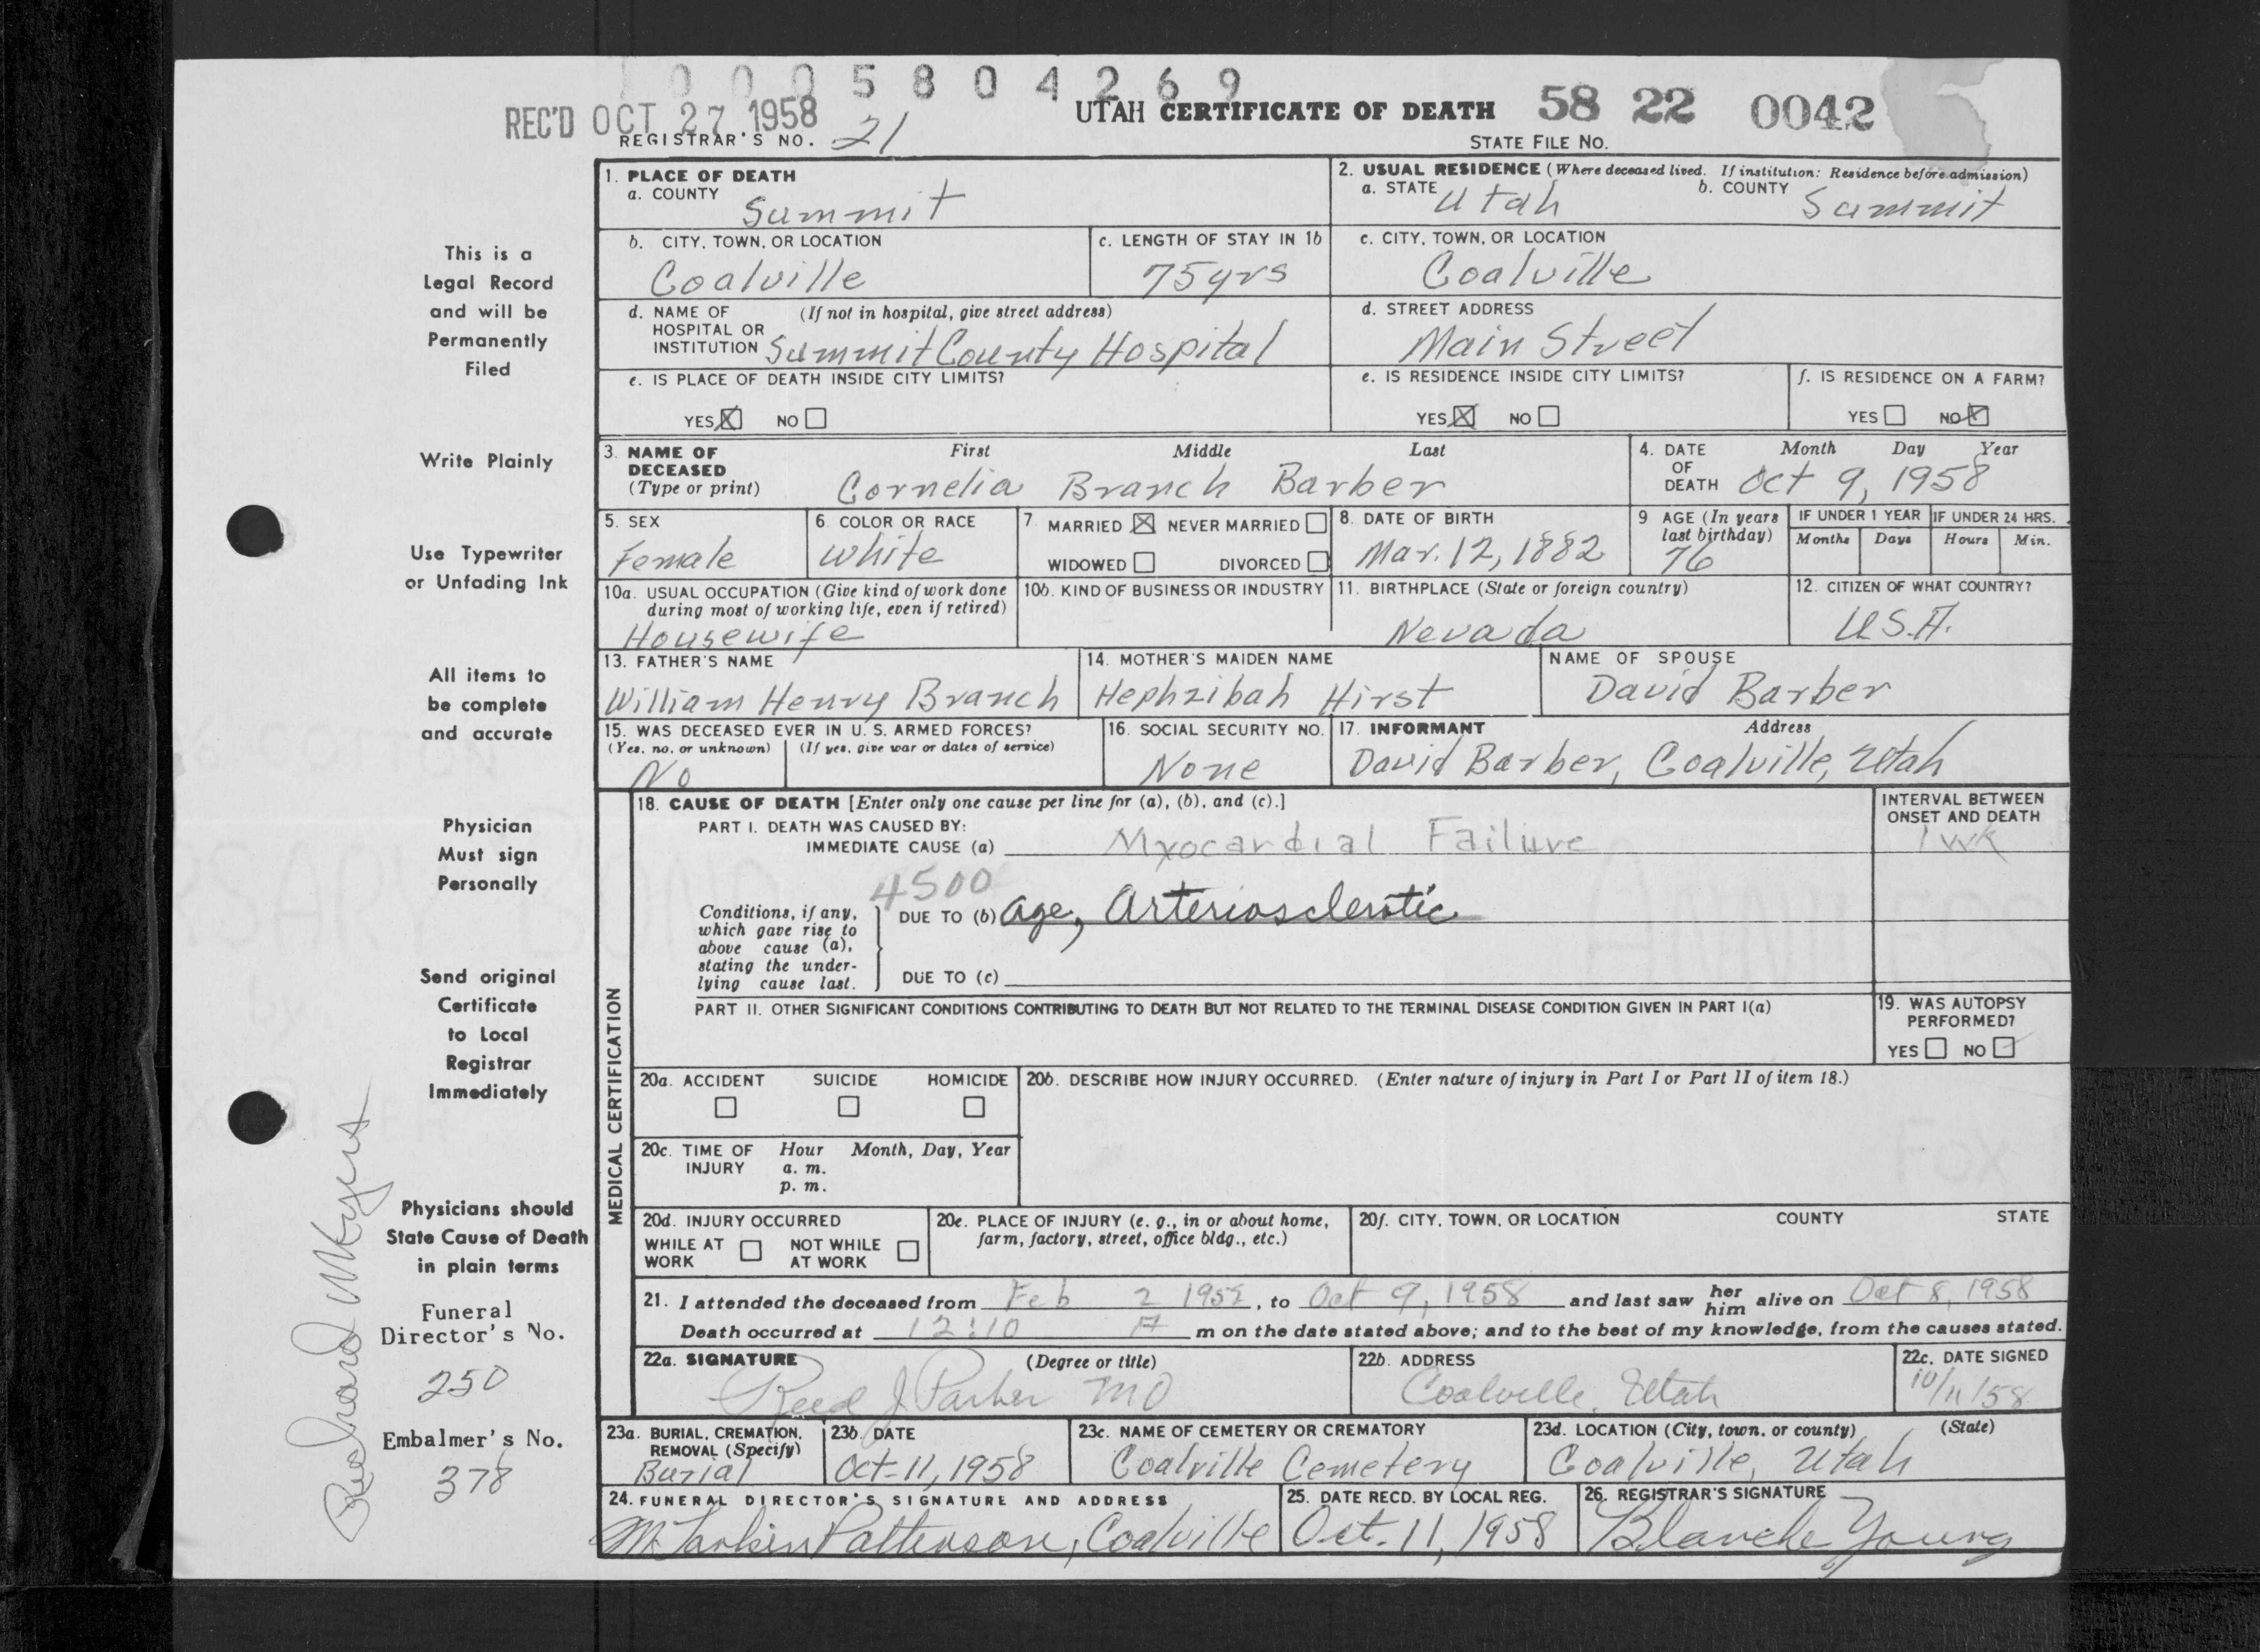 1 0 0 0 5 8 0 4 2 6 9
REC'D OCT 27 1958
UTAH CERTIFICATE OF DEATH 58 22 0042
REGISTRAR'S NO. 21
STATE FILE NO.
This is a
Legal Record
and will be
Permanently
Filed
Write Plainly
Use Typewriter
or Unfading Ink
All items to
be complete
and accurate
Physician
Must sign
Personally
Send original
Certificate
to Local
Registrar
Immediately
Physicians should
State Cause of Death
in plain terms
Funeral
Director's No.
250
Embalmer's No.
378
1. PLACE OF DEATH
a. COUNTY
Summit
2. USUAL RESIDENCE (Where deceased lived. If institution: Residence before admission)
a. STATE Utah b. COUNTY Summit
b. CITY, TOWN, OR LOCATION
Coalville
c. LENGTH OF STAY IN 1b
75 yrs
c. CITY, TOWN, OR LOCATION
Coalville
d. NAME OF (If not in hospital, give street address)
HOSPITAL OR
INSTITUTION Summit County Hospital
d. STREET ADDRESS
Main Street
e. IS PLACE OF DEATH INSIDE CITY LIMITS?
YES X NO
e. IS RESIDENCE INSIDE CITY LIMITS?
YES X NO
f. IS RESIDENCE ON A FARM?
YES NO X
3. NAME OF DECEASED (Type or print)
First Middle Last
Cornelia Branch Barber
4. DATE OF DEATH
Month Day Year
Oct 9, 1958
5. SEX
Female
6. COLOR OR RACE
White
7. MARRIED X NEVER MARRIED
WIDOWED DIVORCED
8. DATE OF BIRTH
Mar. 12, 1882
9 AGE (In years
last birthday)
76
IF UNDER 1 YEAR
Months Days
IF UNDER 24 HRS.
Hours Min.
10a. USUAL OCCUPATION (Give kind of work done
during most of working life, even if retired)
Housewife
10b. KIND OF BUSINESS OR INDUSTRY
11. BIRTHPLACE (State or foreign country)
Nevada
12. CITIZEN OF WHAT COUNTRY?
U.S.A.
13. FATHER'S NAME
William Henry Branch
14. MOTHER'S MAIDEN NAME
Hephzibah Hirst
NAME OF SPOUSE
David Barber
15. WAS DECEASED EVER IN U. S. ARMED FORCES?
(Yes, no, or unknown) (If yes, give war or dates of service)
No
16. SOCIAL SECURITY NO.
None
17. INFORMANT Address
David Barber, Coalville, Utah
MEDICAL CERTIFICATION
18. CAUSE OF DEATH [Enter only one cause per line for (a), (b), and (c).]
INTERVAL BETWEEN
ONSET AND DEATH
PART I. DEATH WAS CAUSED BY:
IMMEDIATE CAUSE (a) Myocardial Failure 1 wk
4500
Conditions, if any,
which gave rise to
above cause (a),
stating the under-
lying cause last.
DUE TO (b) Age, Arteriosclerotic
DUE TO (c)
PART II. OTHER SIGNIFICANT CONDITIONS CONTRIBUTING TO DEATH BUT NOT RELATED TO THE TERMINAL DISEASE CONDITION GIVEN IN PART I(a)
19. WAS AUTOPSY
PERFORMED?
YES NO
20a. ACCIDENT SUICIDE HOMICIDE
20b. DESCRIBE HOW INJURY OCCURRED. (Enter nature of injury in Part I or Part II of item 18.)
20c. TIME OF INJURY
Hour Month, Day, Year
a. m.
p. m.
20d. INJURY OCCURRED
WHILE AT WORK NOT WHILE AT WORK
20e. PLACE OF INJURY (e. g., in or about home,
farm, factory, street, office bldg., etc.)
20f. CITY, TOWN, OR LOCATION COUNTY STATE
21. I attended the deceased from Feb 2 1952, to Oct 9, 1958 and last saw her him alive on Oct 8, 1958
Death occurred at 12:10 A m on the date stated above; and to the best of my knowledge, from the causes stated.
22a. SIGNATURE (Degree or title)
Reed J. Parker MD
22b. ADDRESS
Coalville, Utah
22c. DATE SIGNED
10/11/58
23a. BURIAL, CREMATION,
REMOVAL (Specify)
Burial
23b. DATE
Oct-11, 1958
23c. NAME OF CEMETERY OR CREMATORY
Coalville Cemetery
23d. LOCATION (City, town, or county) (State)
Coalville, Utah
24. FUNERAL DIRECTOR'S SIGNATURE AND ADDRESS
Patterson, Coalville
25. DATE RECD. BY LOCAL REG.
Oct. 11, 1958
26. REGISTRAR'S SIGNATURE
Blanche Young